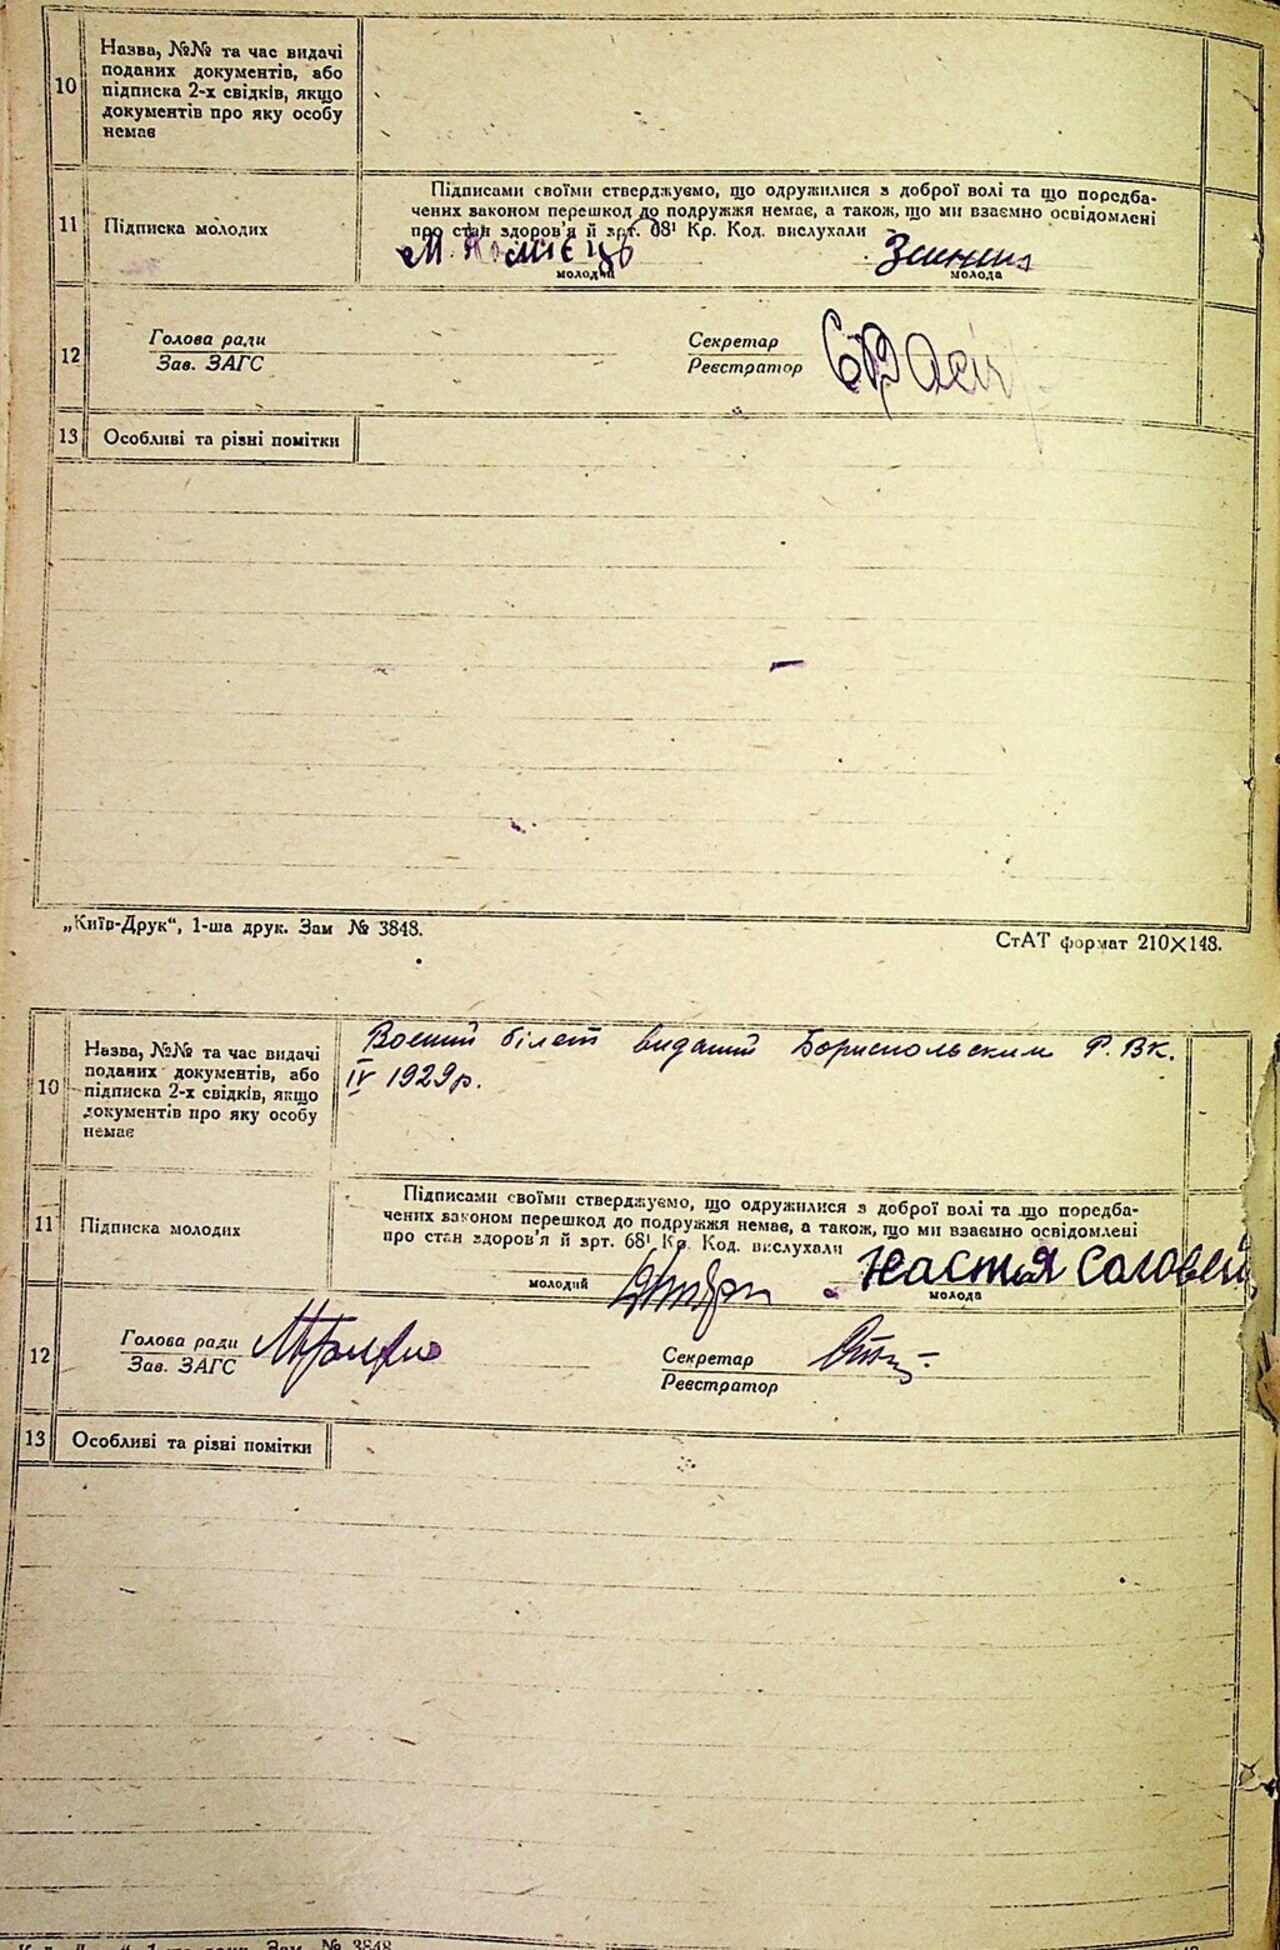 10
Назва, №№ та час видачі
поданих документів, або
підписка 2-х свідків, якщо
документів про яку особу
немає
11
Підписка молодих
Підписами своїми стверджуємо, що одружилися з доброї волі та що поредба-
чених законом перешкод до подружжя немає, а також, що ми взаємно освідомлені
про стан здоров'я й врт. 68¹ Кр. Код. вислухали
М. Коміець
молодий
молода
12
Голова ради
Зав. ЗАГС
Секретар
Реєстратор
13
Особливі та різні помітки
„Київ-Друк“, 1-ша друк. Зам № 3848.
СтАТ формат 210×148.
10
Назва, №№ та час видачі
поданих документів, або
підписка 2-х свідків, якщо
документів про яку особу
немає
Воєний білет виданий Бориспольским Р.В.К.
IV 1929 р.
11
Підписка молодих
Підписами своїми стверджуємо, що одружилися з доброї волі та що поредба-
чених законом перешкод до подружжя немає, а також, що ми взаємно освідомлені
про стан здоров'я й врт. 68¹ Кр. Код. вислухали
молодий
Настя Соловей
молода
12
Голова ради
Зав. ЗАГС
Секретар
Реєстратор
13
Особливі та різні помітки
1-ша друк. Зам № 3848